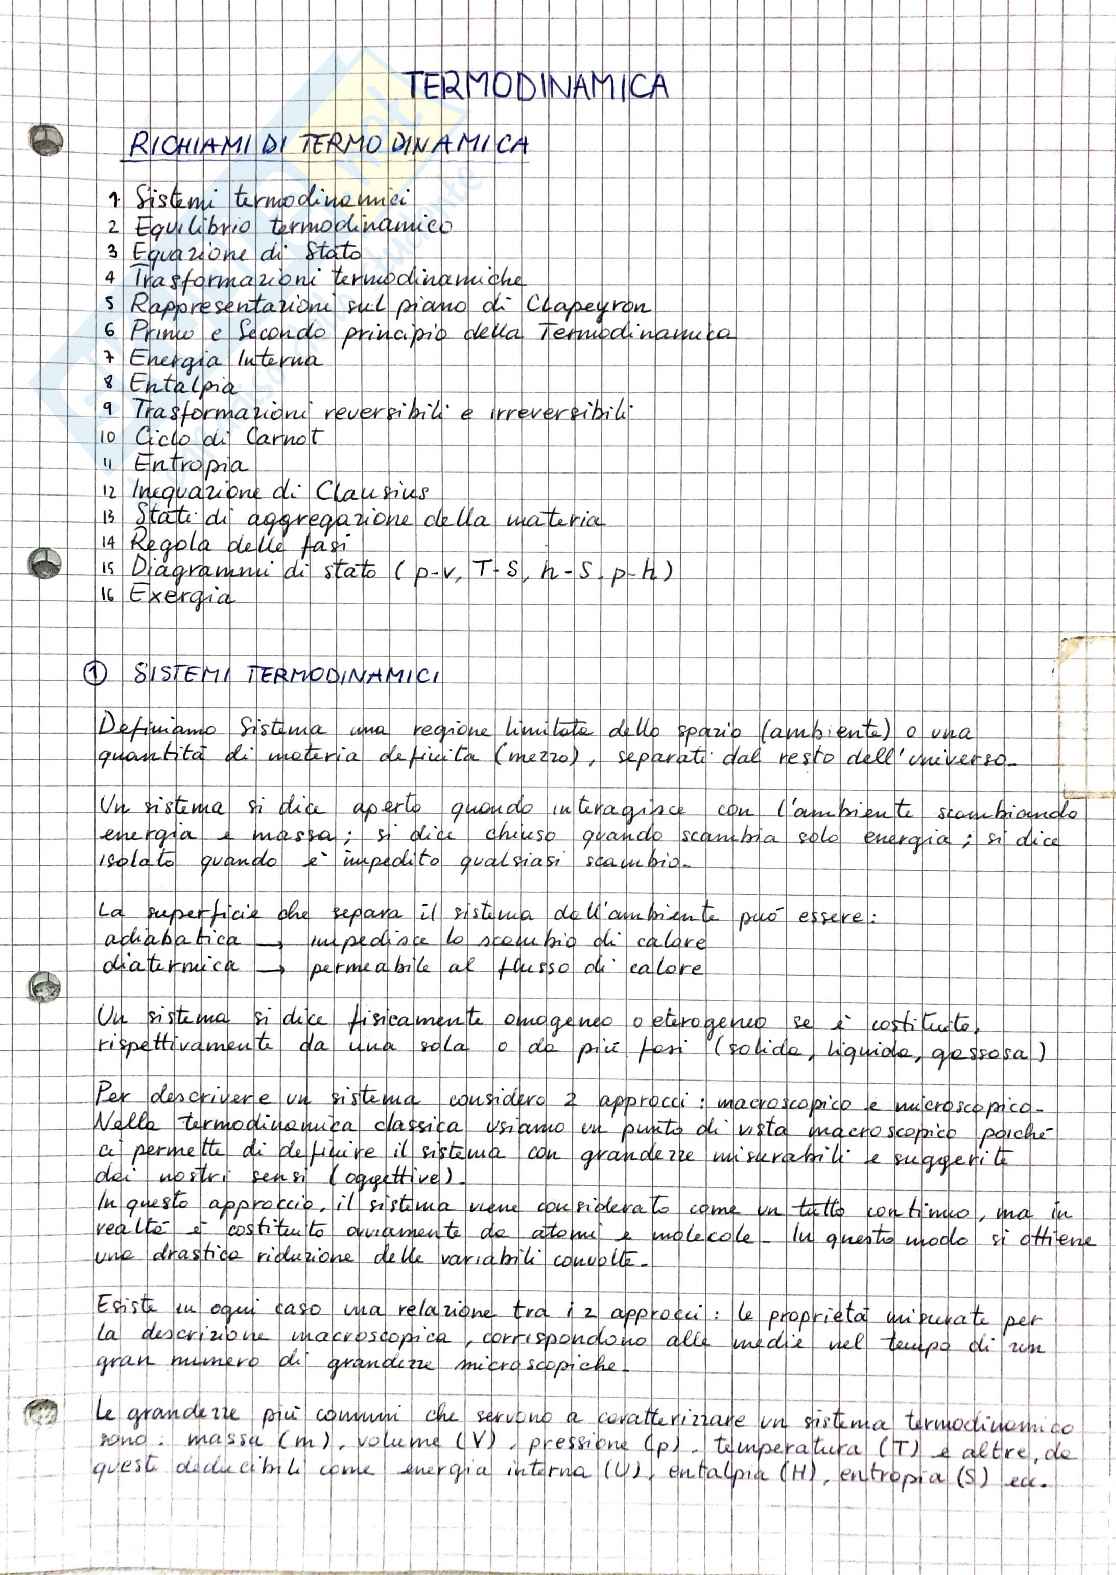 TERMODINAMICA
RICHIAMI DI TERMODINAMICA
1 Sistemi termodinamici
2 Equilibrio termodinamico
3 Equazione di Stato
4 Trasformazioni termodinamiche
5 Rappresentazioni sul piano di Clapeyron
6 Primo e Secondo principio della Termodinamica
7 Energia Interna
8 Entalpia
9 Trasformazioni reversibili e irreversibili
10 Ciclo di Carnot
11 Entropia
12 Inequazione di Clausius
13 Stati di aggregazione della materia
14 Regola delle fasi
15 Diagrammi di stato (p-v, T-S, h-S, p-h)
16 Exergia
1 SISTEMI TERMODINAMICI
Definiamo Sistema una regione limitata dello spazio (ambiente) o una
quantità di materia definita (mezzo), separati dal resto dell'universo.
Un sistema si dice aperto quando interagisce con l'ambiente scambiando
energia e massa; si dice chiuso quando scambia solo energia; si dice
isolato quando è impedito qualsiasi scambio.
La superficie che separa il sistema dall'ambiente può essere:
adiabatica → impedisce lo scambio di calore
diatermica → permeabile al flusso di calore
Un sistema si dice fisicamente omogeneo o eterogeneo se è costituito,
rispettivamente da una sola o da più fasi (solida, liquida, gassosa)
Per descrivere un sistema considero 2 approcci: macroscopico e microscopico.
Nella termodinamica classica usiamo un punto di vista macroscopico poiché
ci permette di definire il sistema con grandezze misurabili e suggerite
dai nostri sensi (oggettive).
In questo approccio, il sistema viene considerato come un tutto continuo, ma in
realtà è costituito ovviamente da atomi e molecole. In questo modo si ottiene
una drastica riduzione delle variabili convolte.
Esiste in ogni caso una relazione tra i 2 approcci: le proprietà misurate per
la descrizione macroscopica, corrispondono alle medie nel tempo di un
gran numero di grandezze microscopiche.
Le grandezze più comuni che servono a caratterizzare un sistema termodinamico
sono: massa (m), volume (V), pressione (p), temperatura (T) e altre, da
questi deducibili come energia interna (U), entalpia (H), entropia (S) ecc.